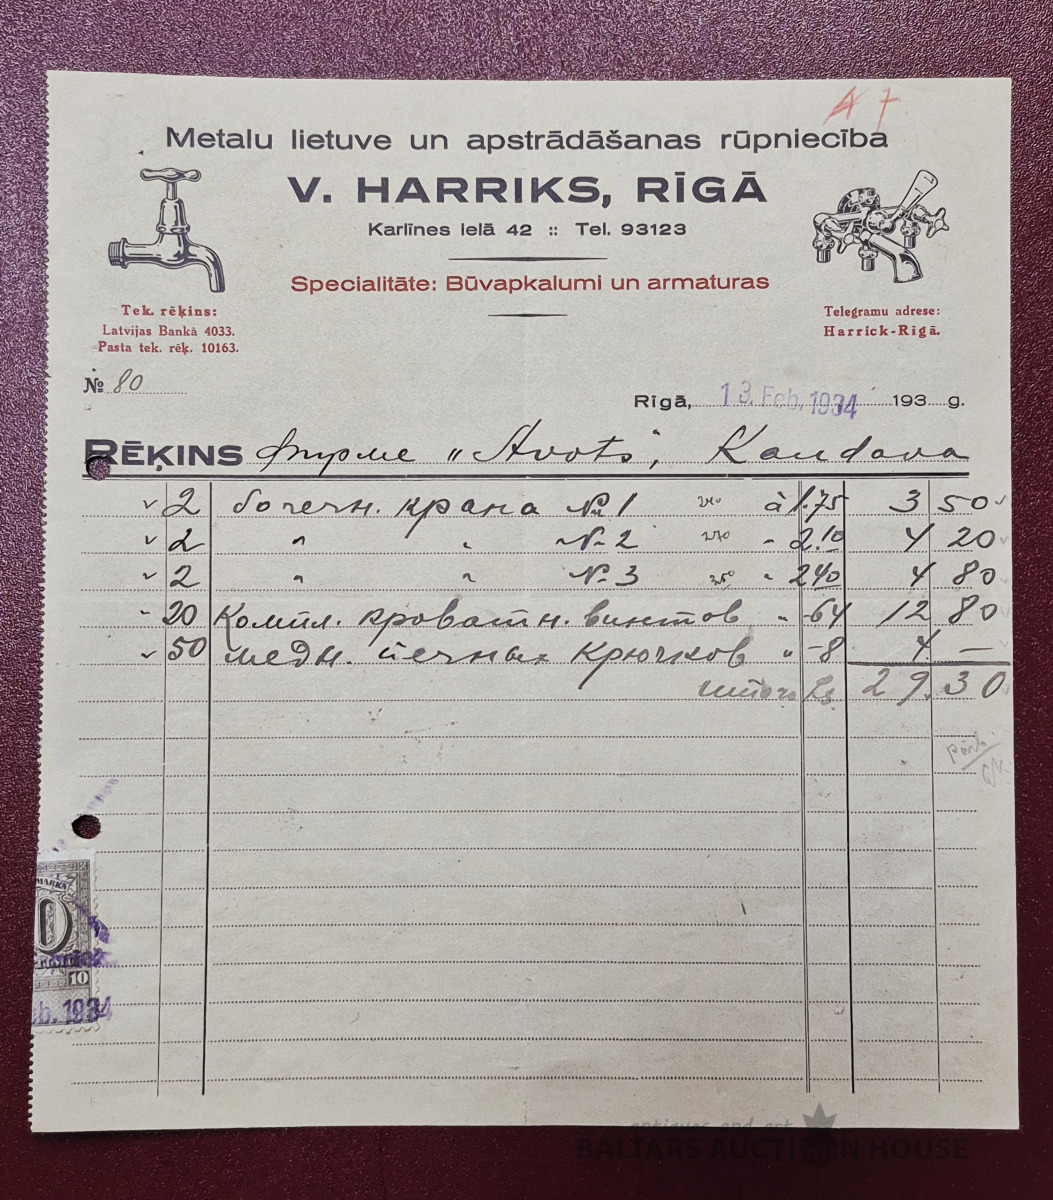 A 7
Metalu lietuve un apstrādāšanas rūpniecība
V. HARRIKS, RĪGĀ
Karlīnes ielā 42 :: Tel. 93123
Specialitāte: Būvapkalumi un armaturas
Tek. rēķins:
Latvijas Bankā 4033.
Pasta tek. rēķ. 10163.
Telegramu adrese:
Harrick-Rīgā.
№ 80
Rīgā, 13. Feb. 1934 193 g.
RĒĶINS фирме "Avots", Kandava
2 бочечн. крана №1 à 1.75 3 50
2 " " №2 " 2.10 4 20
2 " " №3 " 240 4 80
20 Компл. кроватн. винтов " -64 12 80
50 медн. печных крючков " -8 4 —
итого Ls 29.30
MARKA
0
10
eb. 1934
antiques and art
BALTARS AUCTION HOUSE